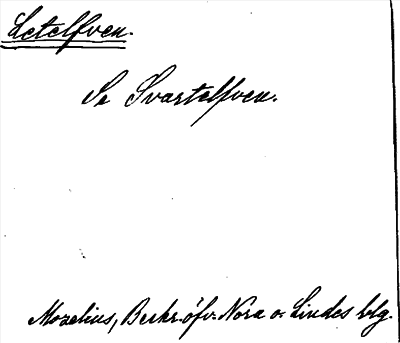 Letelfven.
Se Svartelfven.
Mozelius, Beskr. öfv. Nora o. Lindes blg.